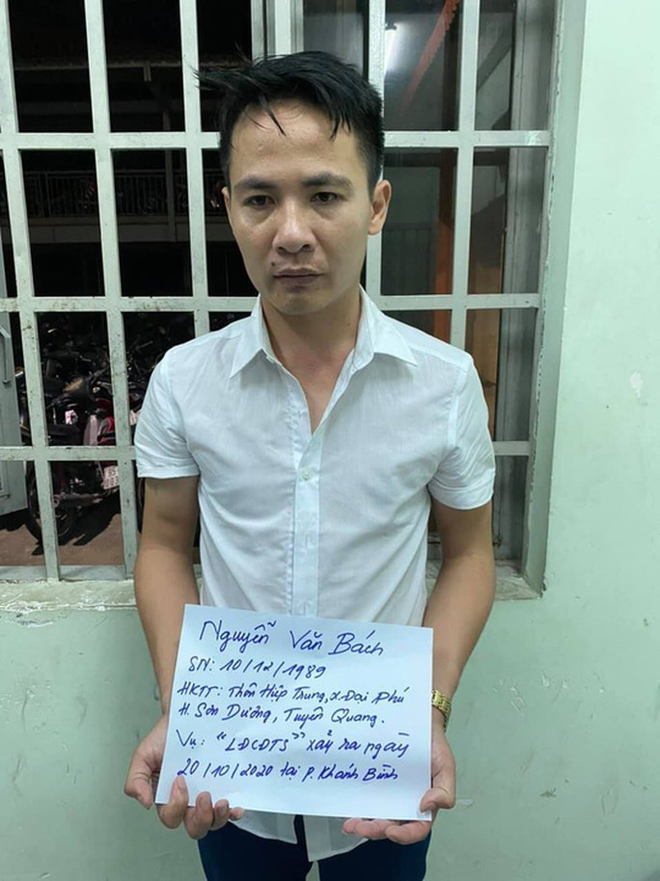 Nguyễn Văn Bách
SN: 10/12/1989
HKTT: Thôn Hiệp Trung, X. Đại Phú
H. Sơn Dương, Tuyên Quang.
Vụ: "LĐCĐTS" xảy ra ngày
20/10/2020 tại P. Khánh Bình